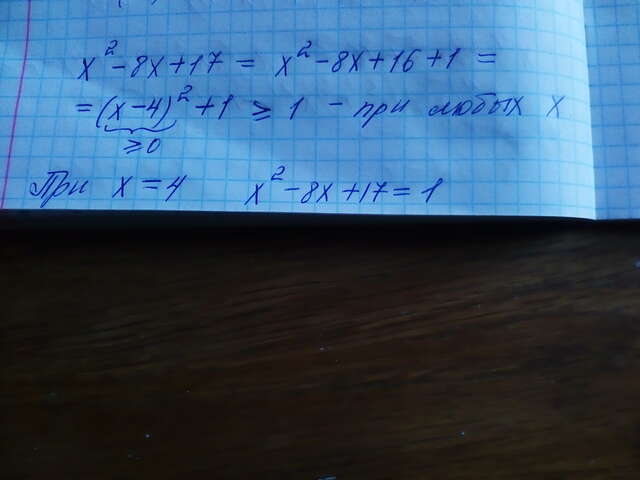 x² - 8x + 17 = x² - 8x + 16 + 1 =
= (x - 4)² + 1 ≥ 1 - при любых x
≥ 0
При x = 4 x² - 8x + 17 = 1